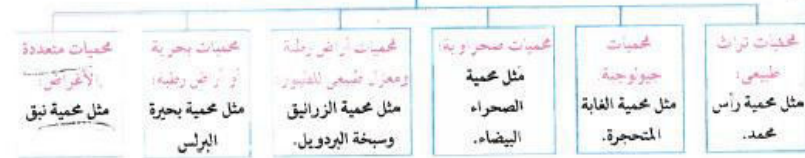 محميات تراث
طبيعي:
مثل محمية رأس
محمد.
محميات
جيولوجية:
مثل محمية الغابة
المتحجرة.
محميات صحراوية:
مثل محمية
الصحراء
البيضاء.
محميات أراض رطبة
ومعزل طبيعي للطيور:
مثل محمية الزرانيق
وسبخة البردويل.
محميات بحرية
أو أرض رطبة:
مثل محمية بحيرة
البرلس
محميات متعددة
الأغراض:
مثل محمية نبق